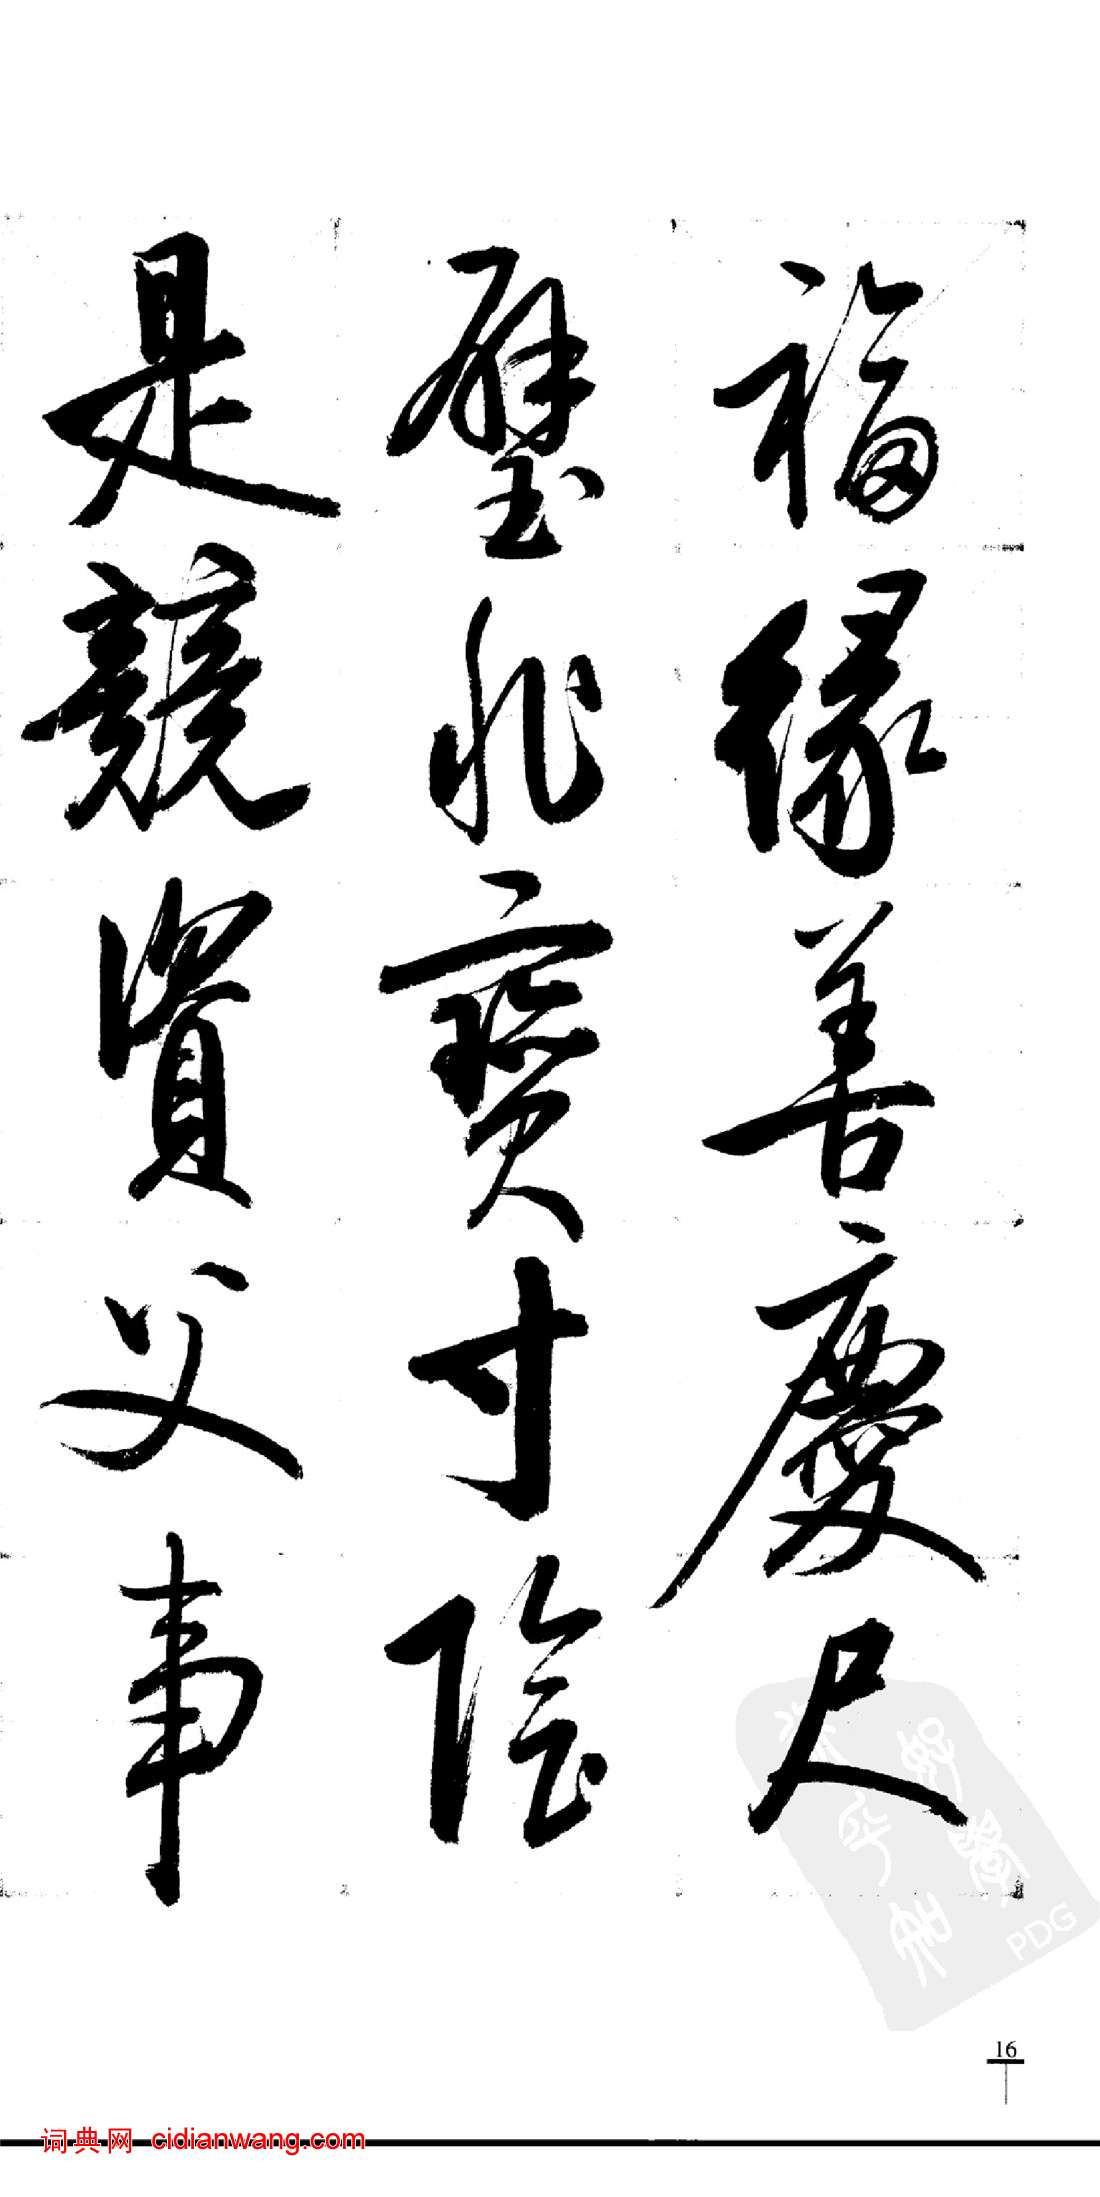 福緣善慶尺
璧非寶寸陰
是競資父事
PDG
16
词典网 cidianwang.com